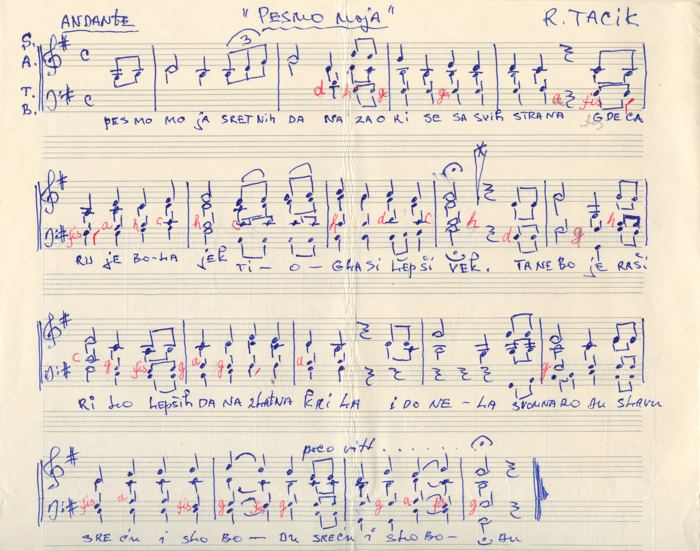 ANDANTE "PESMO MOJA" R. TACIK
S.
A.
T.
B.
C
C
3
d h g g a fis
PESMO MOJA SRETNIH DANA ZAORI SE SA SVIH STRANA GDE CA
fis a h c h c h d c h d g h
RUJE BOLA JER TI-O-GLASI LEPŠI VEK. TA NEBO JE RAŠI
c g fis g a g a g
RILO LEPŠIH DANA ZLATNA KRILA I DONE-LA SVOM NARODU SLAVU
poco ritt........
fis a fis g fis g g a fis g
SREĆU I SLOBO-DU SREĆU I SLOBO-DU